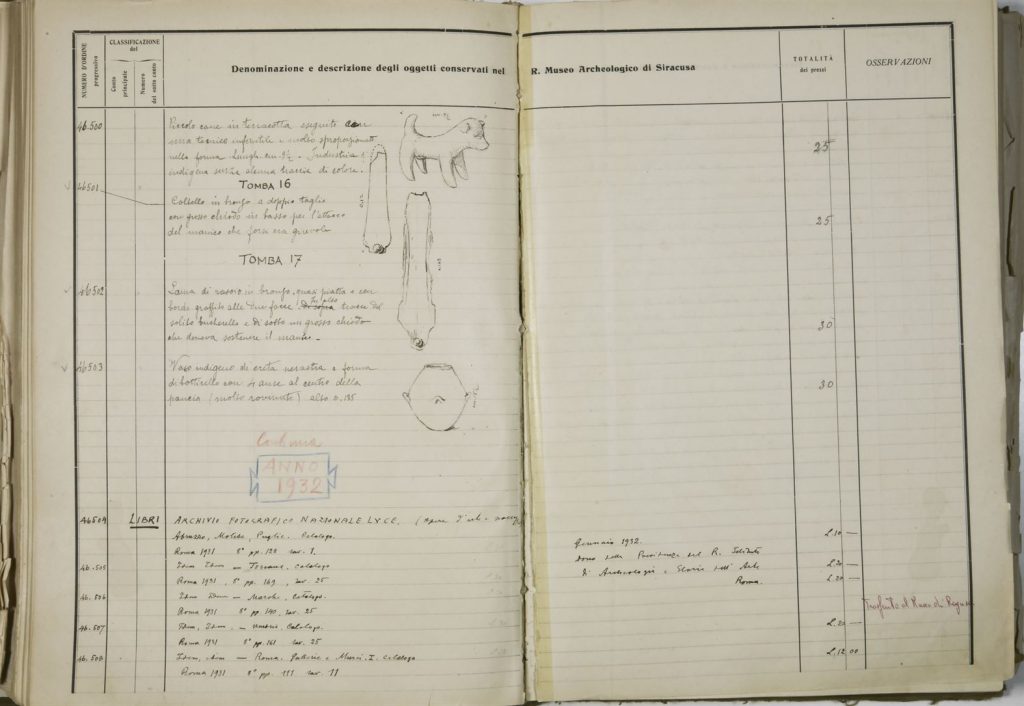 NUMERO D'ORDINE
progressivo
CLASSIFICAZIONE
del
Conto
principale
Numero
del sotto conto
Denominazione e descrizione degli oggetti conservati nel R. Museo Archeologico di Siracusa
TOTALITÀ
dei prezzi
OSSERVAZIONI
46.500 Piccolo cane in terracotta eseguito con
senza tecnica infantile e molto sproporzionato
nella forma. Lungh. cm. 9½. Industria
indigena senza alcuna traccia di colore. 25
TOMBA 16
46501 Coltello in bronzo a doppio taglio
con grosso chiodo in basso per l'attacco
del manico che fora 25
TOMBA 17
46502 Lama di rasoio in bronzo, quasi piatta e con
bordo graffito alle due facce In alto tracce del
solito bucherello e di sotto un grosso chiodo
che doveva sostenere il manico. 30
46503 Vaso indigeno di creta nerastra a forma
di botticella con 4 anse al centro della
pancia (molto rovinato) alto 0.185 30
ANNO
1932
46504 LIBRI ARCHIVIO FOTOGRAFICO NAZIONALE LUCE.
Abruzzo, Molise, Puglie. Catalogo.
Roma 1931 8° pp. 128 tav. 1. L.10 —
Gennaio 1932.
Dono della Presidenza del R. Istituto
di Archeologia e Storia dell'Arte
Roma.
46.505 Idem Idem — Toscana, Catalogo
Roma 1931, 8° pp. 169, tav. 25 L.20 —
46.506 Idem Idem — Marche, Catalogo.
Roma 1931 8° pp. 140, tav. 25 L.20 —
46.507 Idem, Idem. — Umbria, Catalogo.
Roma 1931 8° pp. 161 tav. 25 L.20 —
46.508 Idem, idem — Roma, Gallerie e Musei. I. Catalogo
Roma 1931 8° pp. 111 tav. 11 L.12.00